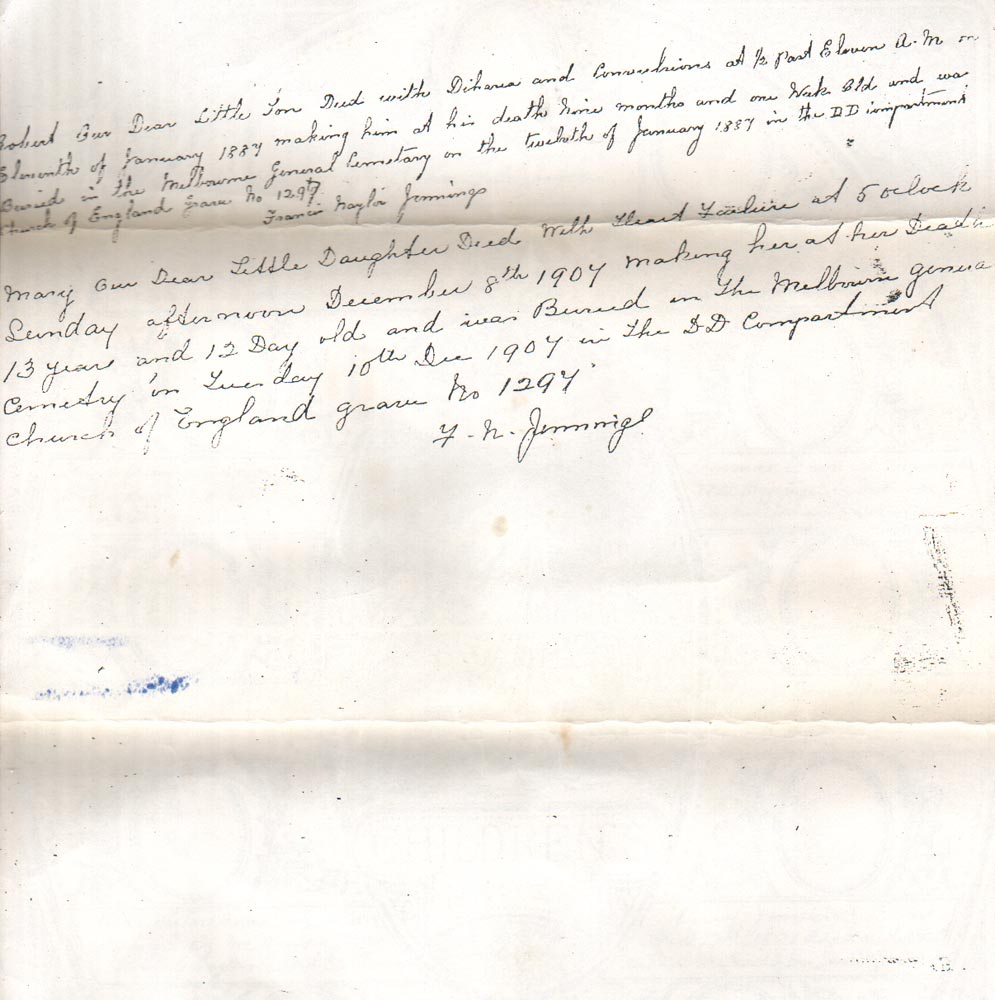 Robert Our Dear Little Son Died with Diharea and Convulsions at ½ past Eleven A.M on
Eleventh of January 1887 making him at his death Nine months and one Week Old and was
Buried in the Melbourne General Cemetary on the twelvth of January 1887 in the DD Compartment
Church of England Grave No 1297
Francis Naylor Jennings
Mary Our Dear Little Daughter Died With Heart Failure at 5 oclock
Sunday afternoon December 8th 1907 making her at her Death
13 years and 12 Day old and was Buried in The Melbourn general
Cemetry on Tuesday 10th Dec 1907 in The DD Compartment
Church of England grave No 1297
F. N. Jennings